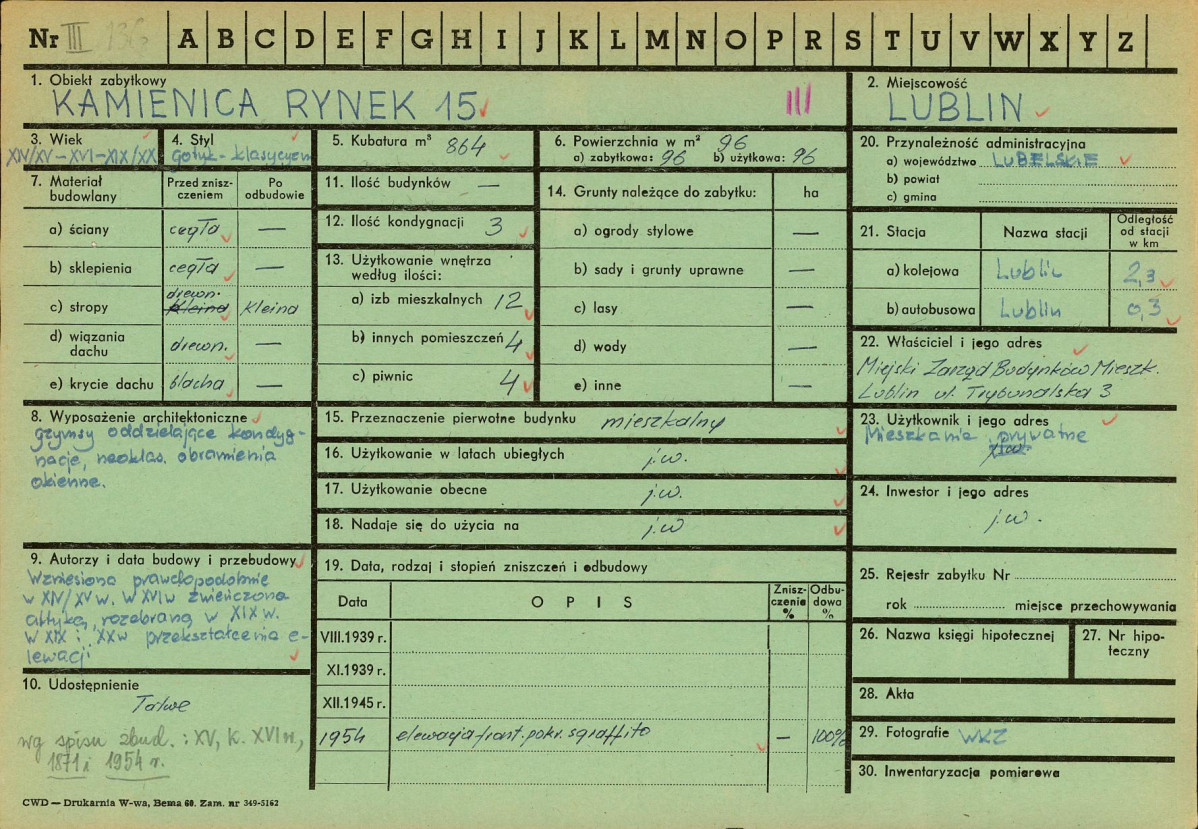 Nr III 136 A B C D E F G H I J K L M N O P R S T U V W X Y Z
1. Obiekt zabytkowy
KAMIENICA RYNEK 15 III
2. Miejscowość
LUBLIN
3. Wiek
XIV/XV-XVI-XIX/XX
4. Styl
gotyk-klasycyzm
5. Kubatura m³ 864
6. Powierzchnia w m² 96
a) zabytkowa: 96 b) użytkowa: 96
7. Materiał budowlany
Przed zniszczeniem
Po odbudowie
a) ściany cegła —
b) sklepienia cegła —
c) stropy drewn. Kleina Kleina
d) wiązania dachu drewn. —
e) krycie dachu blacha —
8. Wyposażenie architektoniczne
gzymsy oddzielające kondyg-
nacje, neoklas. obramienia
okienne.
9. Autorzy i data budowy i przebudowy
Wzniesiona prawdopodobnie
w XIV/XV w. w XVI w zwieńczona
attyką, rozebraną w XIX w.
w XIX i XX w przekształcenia e-
lewacji
10. Udostępnienie
Łatwe
wg spisu zbud.: XV, k. XVI w,
1871 i 1954 r.
11. Ilość budynków —
12. Ilość kondygnacji 3
13. Użytkowanie wnętrza
według ilości:
a) izb mieszkalnych 12
b) innych pomieszczeń 4
c) piwnic 4
14. Grunty należące do zabytku: ha
a) ogrody stylowe —
b) sady i grunty uprawne —
c) lasy —
d) wody —
e) inne —
15. Przeznaczenie pierwotne budynku mieszkalny
16. Użytkowanie w latach ubiegłych j.w.
17. Użytkowanie obecne j.w.
18. Nadaje się do użycia na j.w
19. Data, rodzaj i stopień zniszczeń i odbudowy
Data OPIS Zniszczenie % Odbudowa %
VIII.1939 r.
XI.1939 r.
XII.1945 r.
1954 elewacja front. pokr. sgraffito — 100%
20. Przynależność administracyjna
a) województwo LUBELSKIE
b) powiat
c) gmina
21. Stacja Nazwa stacji Odległość od stacji w km
a) kolejowa Lublin 2,3
b) autobusowa Lublin 0,3
22. Właściciel i jego adres
Miejski Zarząd Budynków Mieszk.
Lublin ul. Trybunalska 3
23. Użytkownik i jego adres
Mieszkania prywatne
24. Inwestor i jego adres
j.w.
25. Rejestr zabytku Nr
rok miejsce przechowywania
26. Nazwa księgi hipotecznej
27. Nr hipoteczny
28. Akta
29. Fotografie WKZ
30. Inwentaryzacja pomiarowa
CWD — Drukarnia W-wa, Bema 60. Zam. nr 349-5162